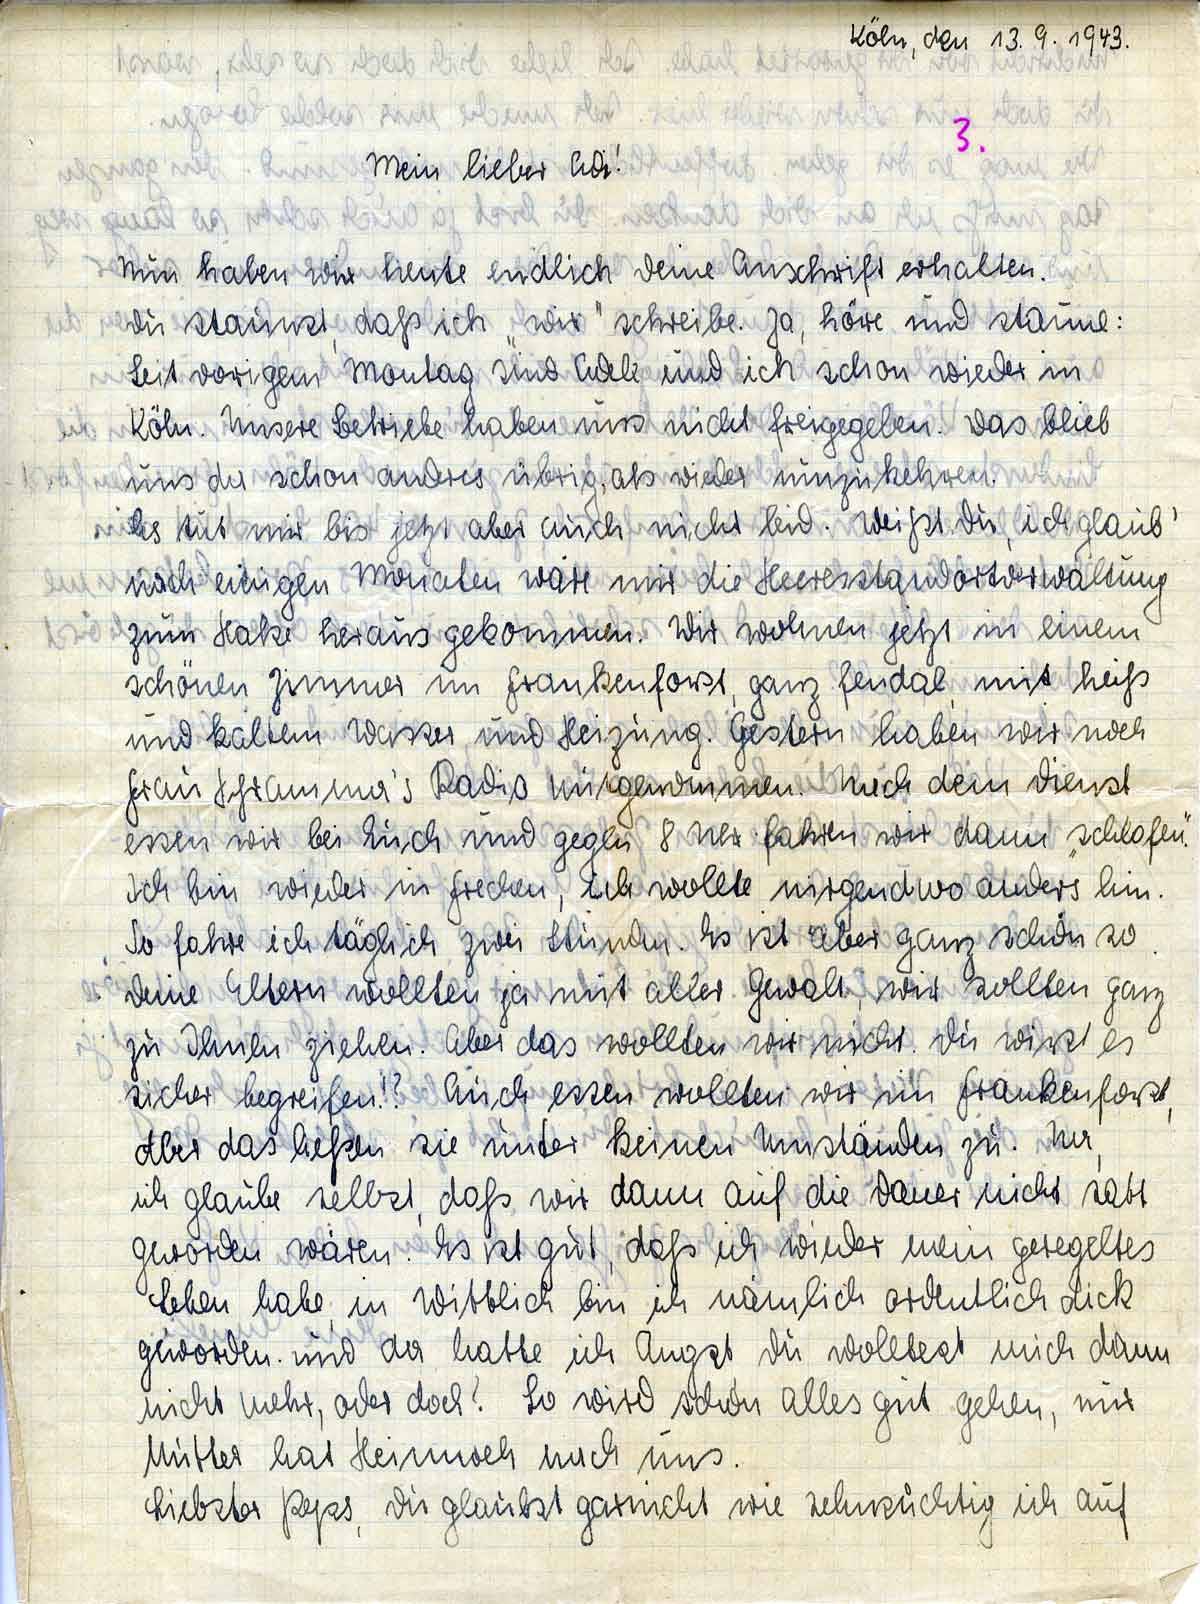 Köln, den 13. 9. 1943.
3.
Mein lieber Adi!
Nun haben wir heute endlich Deine Anschrift erhalten.
Du staunst, daß ich „wir" schreibe. Ja, höre und staune:
Seit vorigem Montag sind Adele und ich schon wieder in
Köln. Unsere Betriebe haben uns nicht freigegeben. Was blieb
uns da schon anderes übrig, als wieder umzukehren.
Es tut mir bis jetzt aber auch nicht leid. Weißt Du, ich glaub'
nach einigen Monaten wäre mir die Heeresstandortverwaltung
zum Halse heraus gekommen. Wir wohnen jetzt in einem
schönen Zimmer im Frankenforst, ganz feudal, mit heiß
und kaltem Wasser und Heizung. Gestern haben wir noch
Frau Schramma's Radio mitgenommen. Nach dem Dienst
essen wir bei Euch und gegen 8 Uhr fahren wir dann „schlafen".
Ich bin wieder in Frechen, ich wollte nirgendwo anders hin.
So fahre ich täglich zwei Stunden. Es ist aber ganz schön so.
Deine Eltern wollten ja mit aller Gewalt, wir sollten ganz
zu Ihnen ziehen. Aber das wollten wir nicht. Du wirst es
sicher begreifen!? Auch essen wollten wir im Frankenforst,
aber das ließen sie unter keinen Umständen zu. Na,
ich glaube selbst, daß wir dann auf die Dauer nicht satt
geworden wären. Es ist gut, daß ich wieder mein geregeltes
Leben habe, in Wittlich bin ich nämlich ordentlich dick
geworden. und da hatte ich Angst Du wolltest mich dann
nicht mehr, oder doch? So wird schon alles gut gehen, nur
Mutter hat Heimweh nach uns.
Liebster Peps, Du glaubst garnicht wie sehnsüchtig ich auf